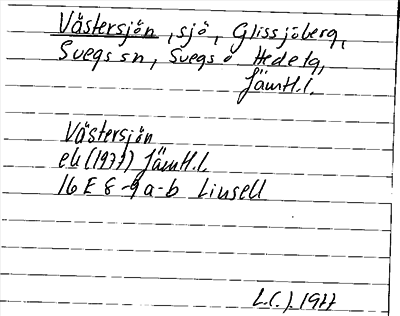 Västersjön, sjö, Glissjöberg,
Svegs sn, Svegs o Hede tg,
Jämtl.l.
Västersjön
ek (1977) Jämtl.l.
16 E 8-9 a-b Linsell
L.C.J. 1977